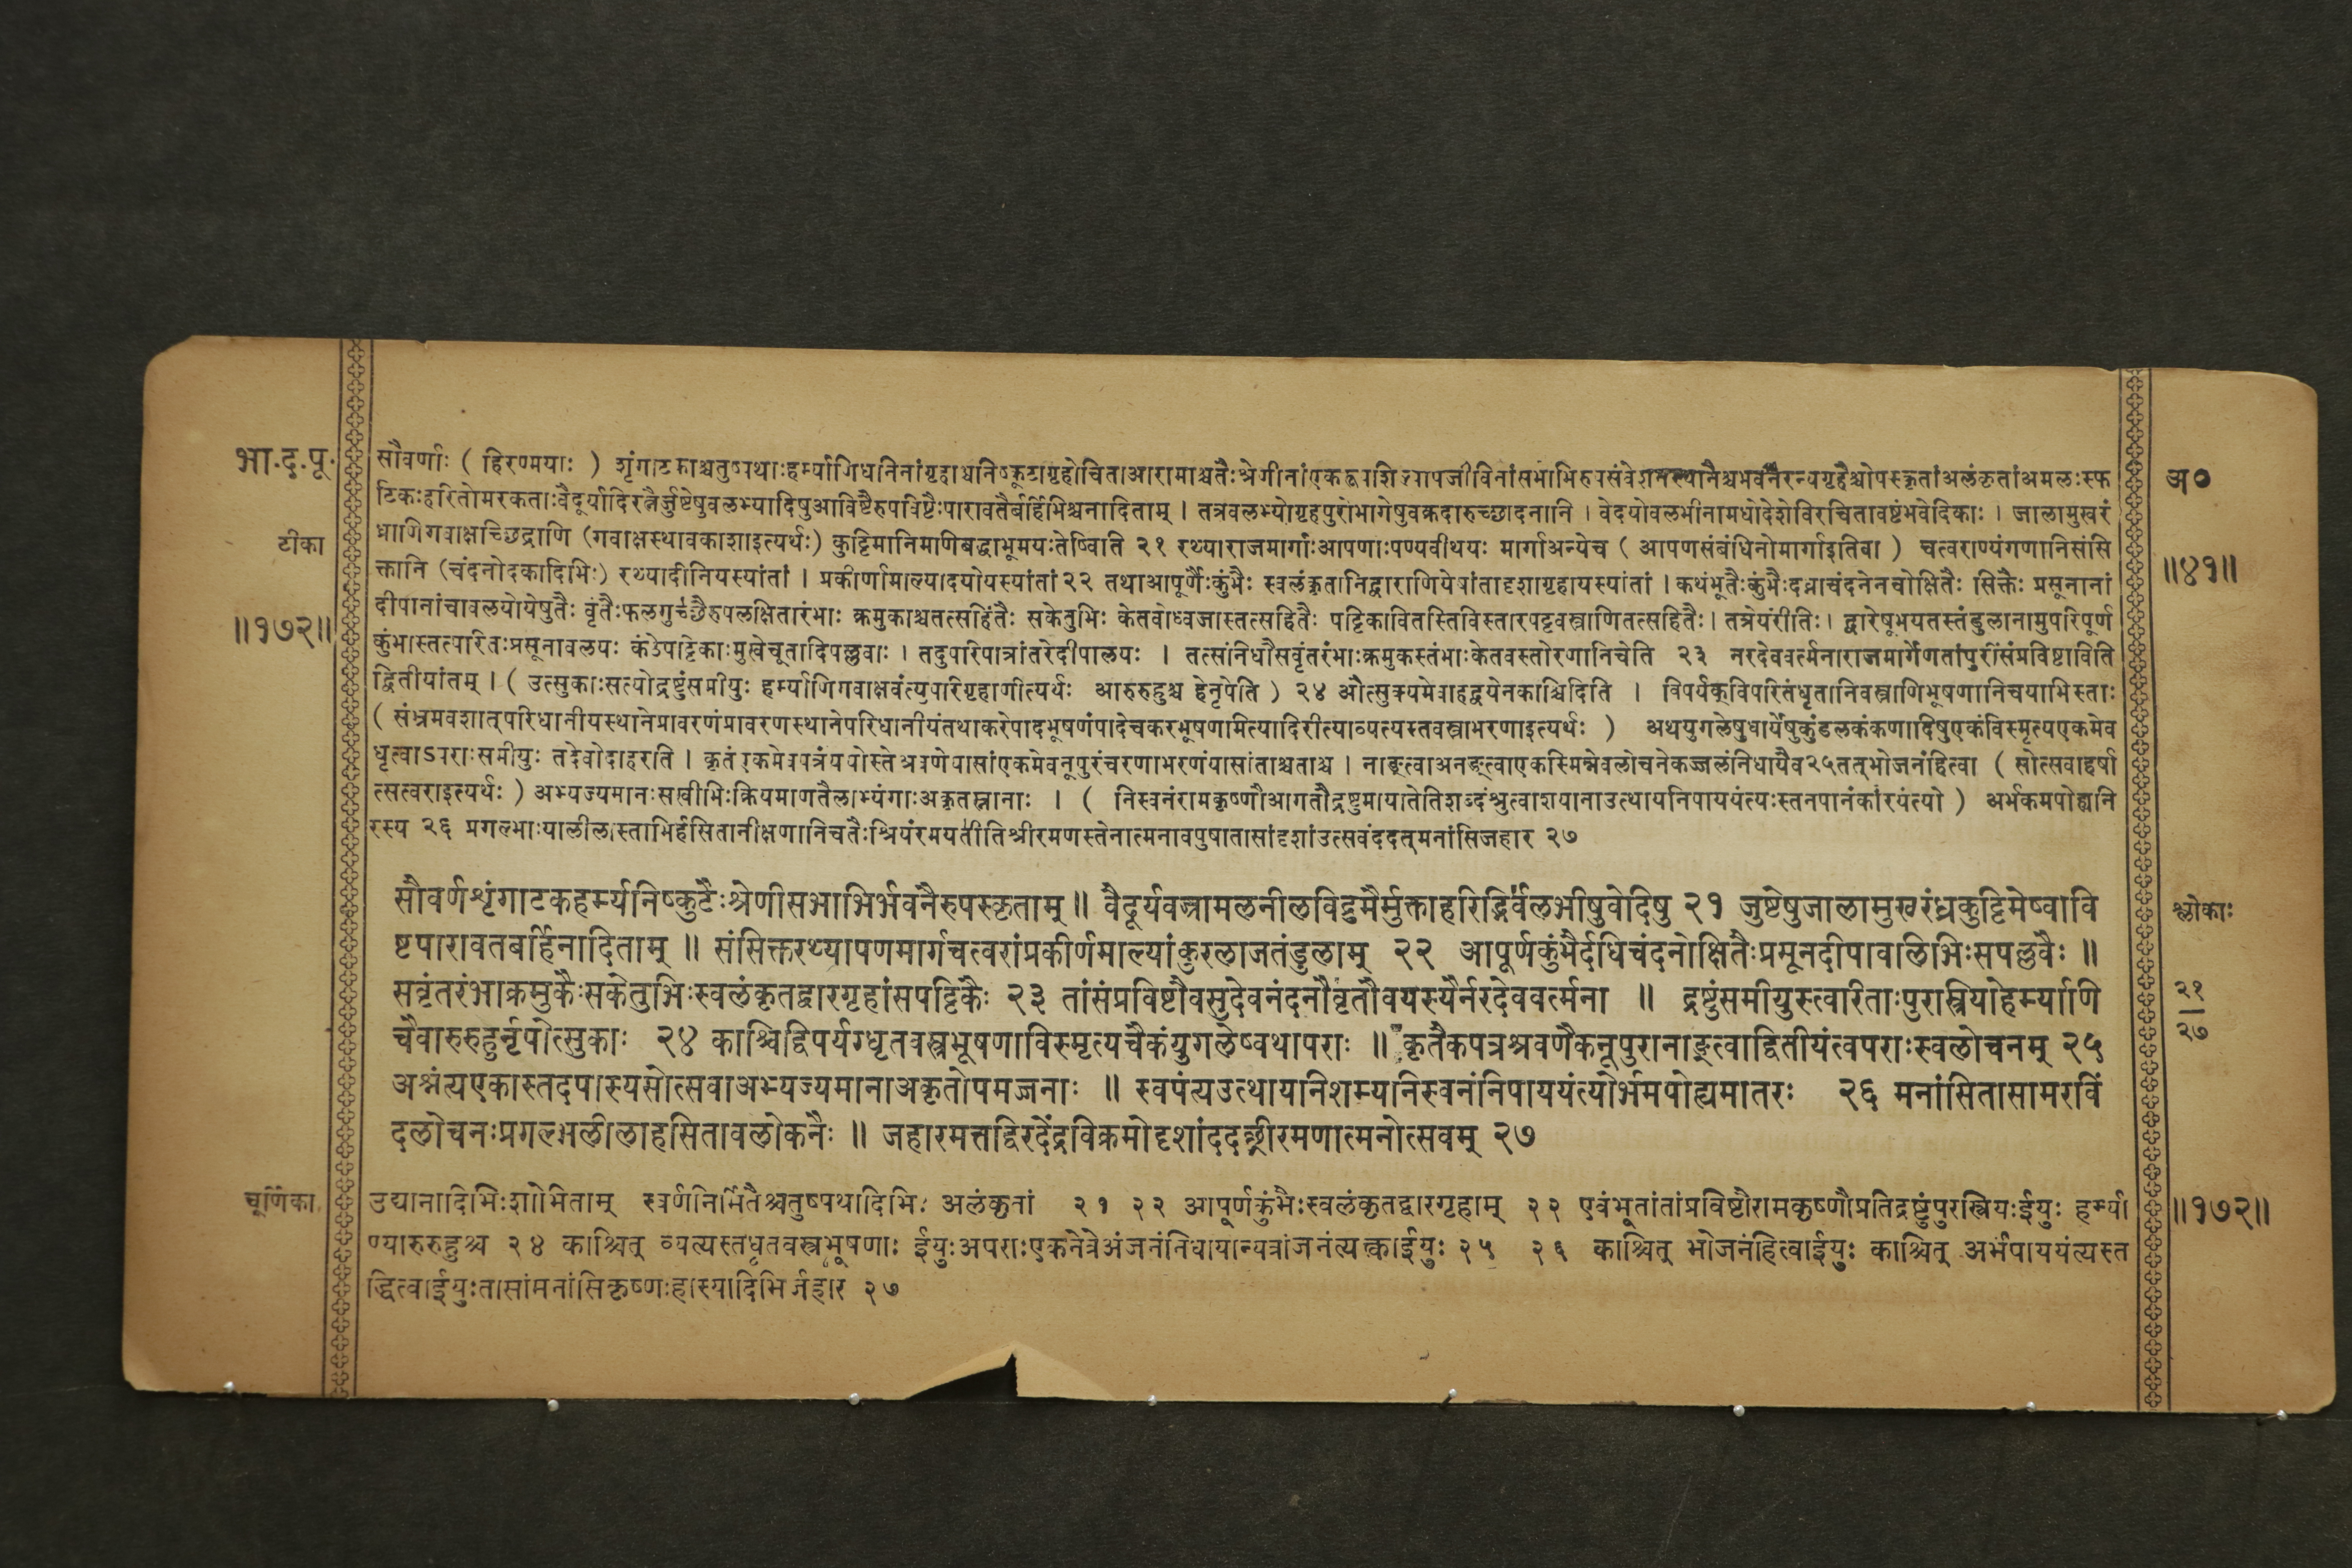 भा.द.पू.
टीका
॥१७२॥
सौवर्णाः ( हिरण्मयाः ) शृंगाटकाश्चतुष्पथाःहर्म्याणिधनिनांगृहाश्चनिष्कूटागृहोचिताआरामाश्चतैःश्रेणीनांएकद्वयशिल्पोपजीविनांसभाभिरुपसंवेशनस्थानैश्चभवनैरन्यगृहैश्चोपस्कृतांअलंकृतांअमलःस्फ
टिकःहरितोमरकताःवैदूर्यादिरत्नैर्जुष्टेषुवलभ्यादिषुआविष्टैरुपविष्टैःपारावतैर्बर्हिभिश्चनादिताम् । तत्रवलभ्योगृहपुरोभागेषुवक्रदारुच्छादनानि । वेदयोवलभीनामधोदेशेविरचितावष्टंभवेदिकाः । जालामुखरं
ध्राणिगवाक्षच्छिद्राणि (गवाक्षस्थावकाशाइत्यर्थः) कुट्टिमानिमणिबद्धाभूमयःतेष्विति २१ रथ्याराजमार्गाःआपणाःपण्यवीथयः मार्गाअन्येच ( आपणसंबंधिनोमार्गाइतिवा ) चत्वराण्यंगणानिसंसि
क्तानि (चंदनोदकादिभिः) रथ्यादीनियस्यांतां । प्रकीर्णामाल्यादयोयस्यांतां २२ तथाआपूर्णैःकुंभैः स्वलंकृतानिद्वाराणियेषांतादृशागृहायस्यांतां । कथंभूतैःकुंभैःदध्नाचंदनेनचोक्षितैः सिक्तैः प्रसूनानां
दीपानांचावलयोयेषुतैः वृंतैःफलगुच्छैरुपलक्षितारंभाः क्रमुकाश्चतत्सहितैः सकेतुभिः केतवोध्वजास्तत्सहितैः पट्टिकावितस्तिविस्तारपट्टवस्त्राणितत्सहितैः । तत्रेयंरीतिः । द्वारेषूभयतस्तंडुलानामुपरिपूर्ण
कुंभास्तत्परितःप्रसूनावलयः कंठेपट्टिकाःमुखेचूतादिपल्लवाः । तदुपरिपात्रांतरेदीपालयः । तत्संनिधौसवृंतरंभाःक्रमुकस्तंभाःकेतवस्तोरणानिचेति २३ नरदेववर्त्मनाराजमार्गेणतांपुरींसंप्रविष्टाविति
द्वितीयांतम् । ( उत्सुकाःसत्योद्रष्टुंसमीयुः हर्म्याणिगवाक्षवंत्युपरिगृहाणीत्यर्थः आरुरुहुश्च हेनृपेति ) २४ औत्सुक्यमेवाहद्वयेनकाश्चिदिति । विपर्यक्विपरितंधृतानिवस्त्राणिभूषणानिचयाभिस्ताः
( संभ्रमवशात्परिधानीयस्थानेप्रावरणंप्रावरणस्थानेपरिधानीयंतथाकरेपादभूषणंपादेचकरभूषणमित्यादिरीत्याव्यत्यस्तवस्त्राभरणाइत्यर्थः ) अथयुगलेषुधार्येषुकुंडलकंकणादिषुएकंविस्मृत्यएकमेव
धृत्वाऽपराःसमीयुः तदेवोदाहरति । कृतंएकमेवपत्रंययोस्तेश्रवणेयासांएकमेवनूपुरंचरणाभरणंयासांताश्चताश्च । नाङ्क्त्वाअनङ्क्त्वाएकस्मिन्नेवलोचनेकज्जलंनिधायैव२५तत्भोजनंहित्वा ( सोत्सवाहर्षा
त्सत्वराइत्यर्थः ) अभ्यज्यमानाःसखीभिःक्रियमाणतैलाभ्यंगाःअकृतस्नानाः । ( निस्वनंरामकृष्णौआगतौद्रष्टुमायातेतिशब्दंश्रुत्वाशयानाउत्थायनिपाययंत्यःस्तनपानंकारयंत्यो ) अर्भकमपोह्यनि
रस्य २६ प्रगल्भाःयालीलास्ताभिर्हसितानीक्षणानिचतैःश्रियंरमयतीतिश्रीरमणस्तेनात्मनावपुषातासांदृशांउत्सवंददत्मनांसिजहार २७
सौवर्णशृंगाटकहर्म्यनिष्कुटैःश्रेणीसभाभिर्भवनैरुपस्कृताम् ॥ वैदूर्यवज्रामलनीलविद्रुमैर्मुक्ताहरिद्भिर्वलभीषुवेदिषु २१ जुष्टेषुजालामुखरंध्रकुट्टिमेष्वावि
ष्टपारावतबर्हिनादिताम् ॥ संसिक्तरथ्यापणमार्गचत्वरांप्रकीर्णमाल्यांकुरलाजतंडुलाम् २२ आपूर्णकुंभैर्दधिचंदनोक्षितैःप्रमूनदीपावलिभिःसपल्लवैः ॥
सवृंतरंभाक्रमुकैःसकेतुभिःस्वलंकृतद्वारगृहांसपट्टिकैः २३ तांसंप्रविष्टौवसुदेवनंदनौवृंतौवयस्यैर्नरदेववर्त्मना ॥ द्रष्टुंसमीयुस्त्वारिताःपुरास्त्रियोहर्म्याणि
चैवारुरुहुर्नृपोत्सुकाः २४ काश्चिद्विपर्यग्धृतवस्त्रभूषणाविस्मृत्यचैकंयुगलेष्वथापराः ॥ कृतैकपत्रश्रवणैकनूपुरानाङ्क्त्वाद्वितीयंत्वपराःस्वलोचनम् २५
अश्नंत्यएकास्तदपास्यसोत्सवाअभ्यज्यमानाअकृतोपमज्जनाः ॥ स्वपंत्यउत्थायनिशम्यनिस्वनंनिपाययंत्योर्भमपोह्यमातरः २६ मनांसितासामरविं
दलोचनःप्रगल्भलीलाहसितावलोकनैः ॥ जहारमत्तद्विरदेंद्रविक्रमोदृशांददच्छ्रीरमणात्मनोत्सवम् २७
चूर्णिका
उद्यानादिभिःशोभिताम् स्वर्णनिर्मितैश्चतुष्पथादिभिः अलंकृतां २१ २२ आपूर्णकुंभैःस्वलंकृतद्वारगृहाम् २३ एवंभूतांतांप्रविष्टौरामकृष्णौप्रतिद्रष्टुंपुरस्त्रियःईयुः हर्म्या
ण्यारुरुहुश्च २४ काश्चित् व्यत्यस्तधृतवस्त्रभूषणाः ईयुःअपराःएकनेत्रेअंजनंनिधायान्यत्रांजनंत्यक्त्वाईयुः २५ २६ काश्चित् भोजनंहित्वाईयुः काश्चित् अर्भंपाययंत्यस्त
द्धित्वाईयुःतासांमनांसिकृष्णःहास्यादिभिर्जहार २७
अ०
॥४१॥
श्लोकाः
२१
२७
॥१७२॥